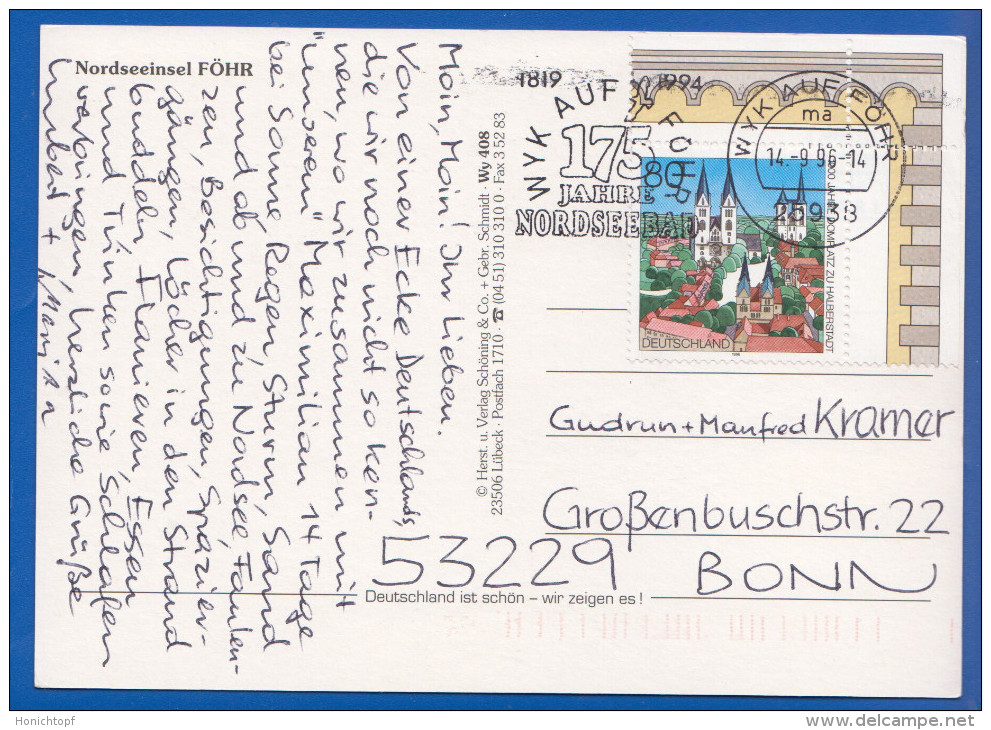 Nordseeinsel FÖHR
Moin, Moin! Ihr Lieben.
Von einer Ecke Deutschlands,
die wir noch nicht so ken-
nen, wo wir zusammen mit
"unserem" Maximilian 14 Tage
bei Sonne, Regen, Sturm, Sand
und ab und zu Nordsee, Faulen-
zen, Besichtigungen, Spazier-
gängen, Löcher in den Strand
buddeln, Flanieren, Essen
und Trinken sowie Schlafen
verbringen, herzliche Grüße
+ Marita
© Herst. u. Verlag Schöning & Co. + Gebr. Schmidt · Wv 408
23506 Lübeck · Postfach 1710 · ☎ (04 51) 310 310 0 · Fax 3 52 83
1819 1994
WYK AUF FÖHR
175
JAHRE
NORDSEEBAD
WYK AUF FÖHR
ma
14.-9.96-14
25938
80
1000 JAHRE DOMPLATZ ZU HALBERSTADT
DEUTSCHLAND
1996
Gudrun + Manfred Kramer
Großenbuschstr. 22
53229 BONN
Deutschland ist schön – wir zeigen es !
Honichtopf
www.delcampe.net